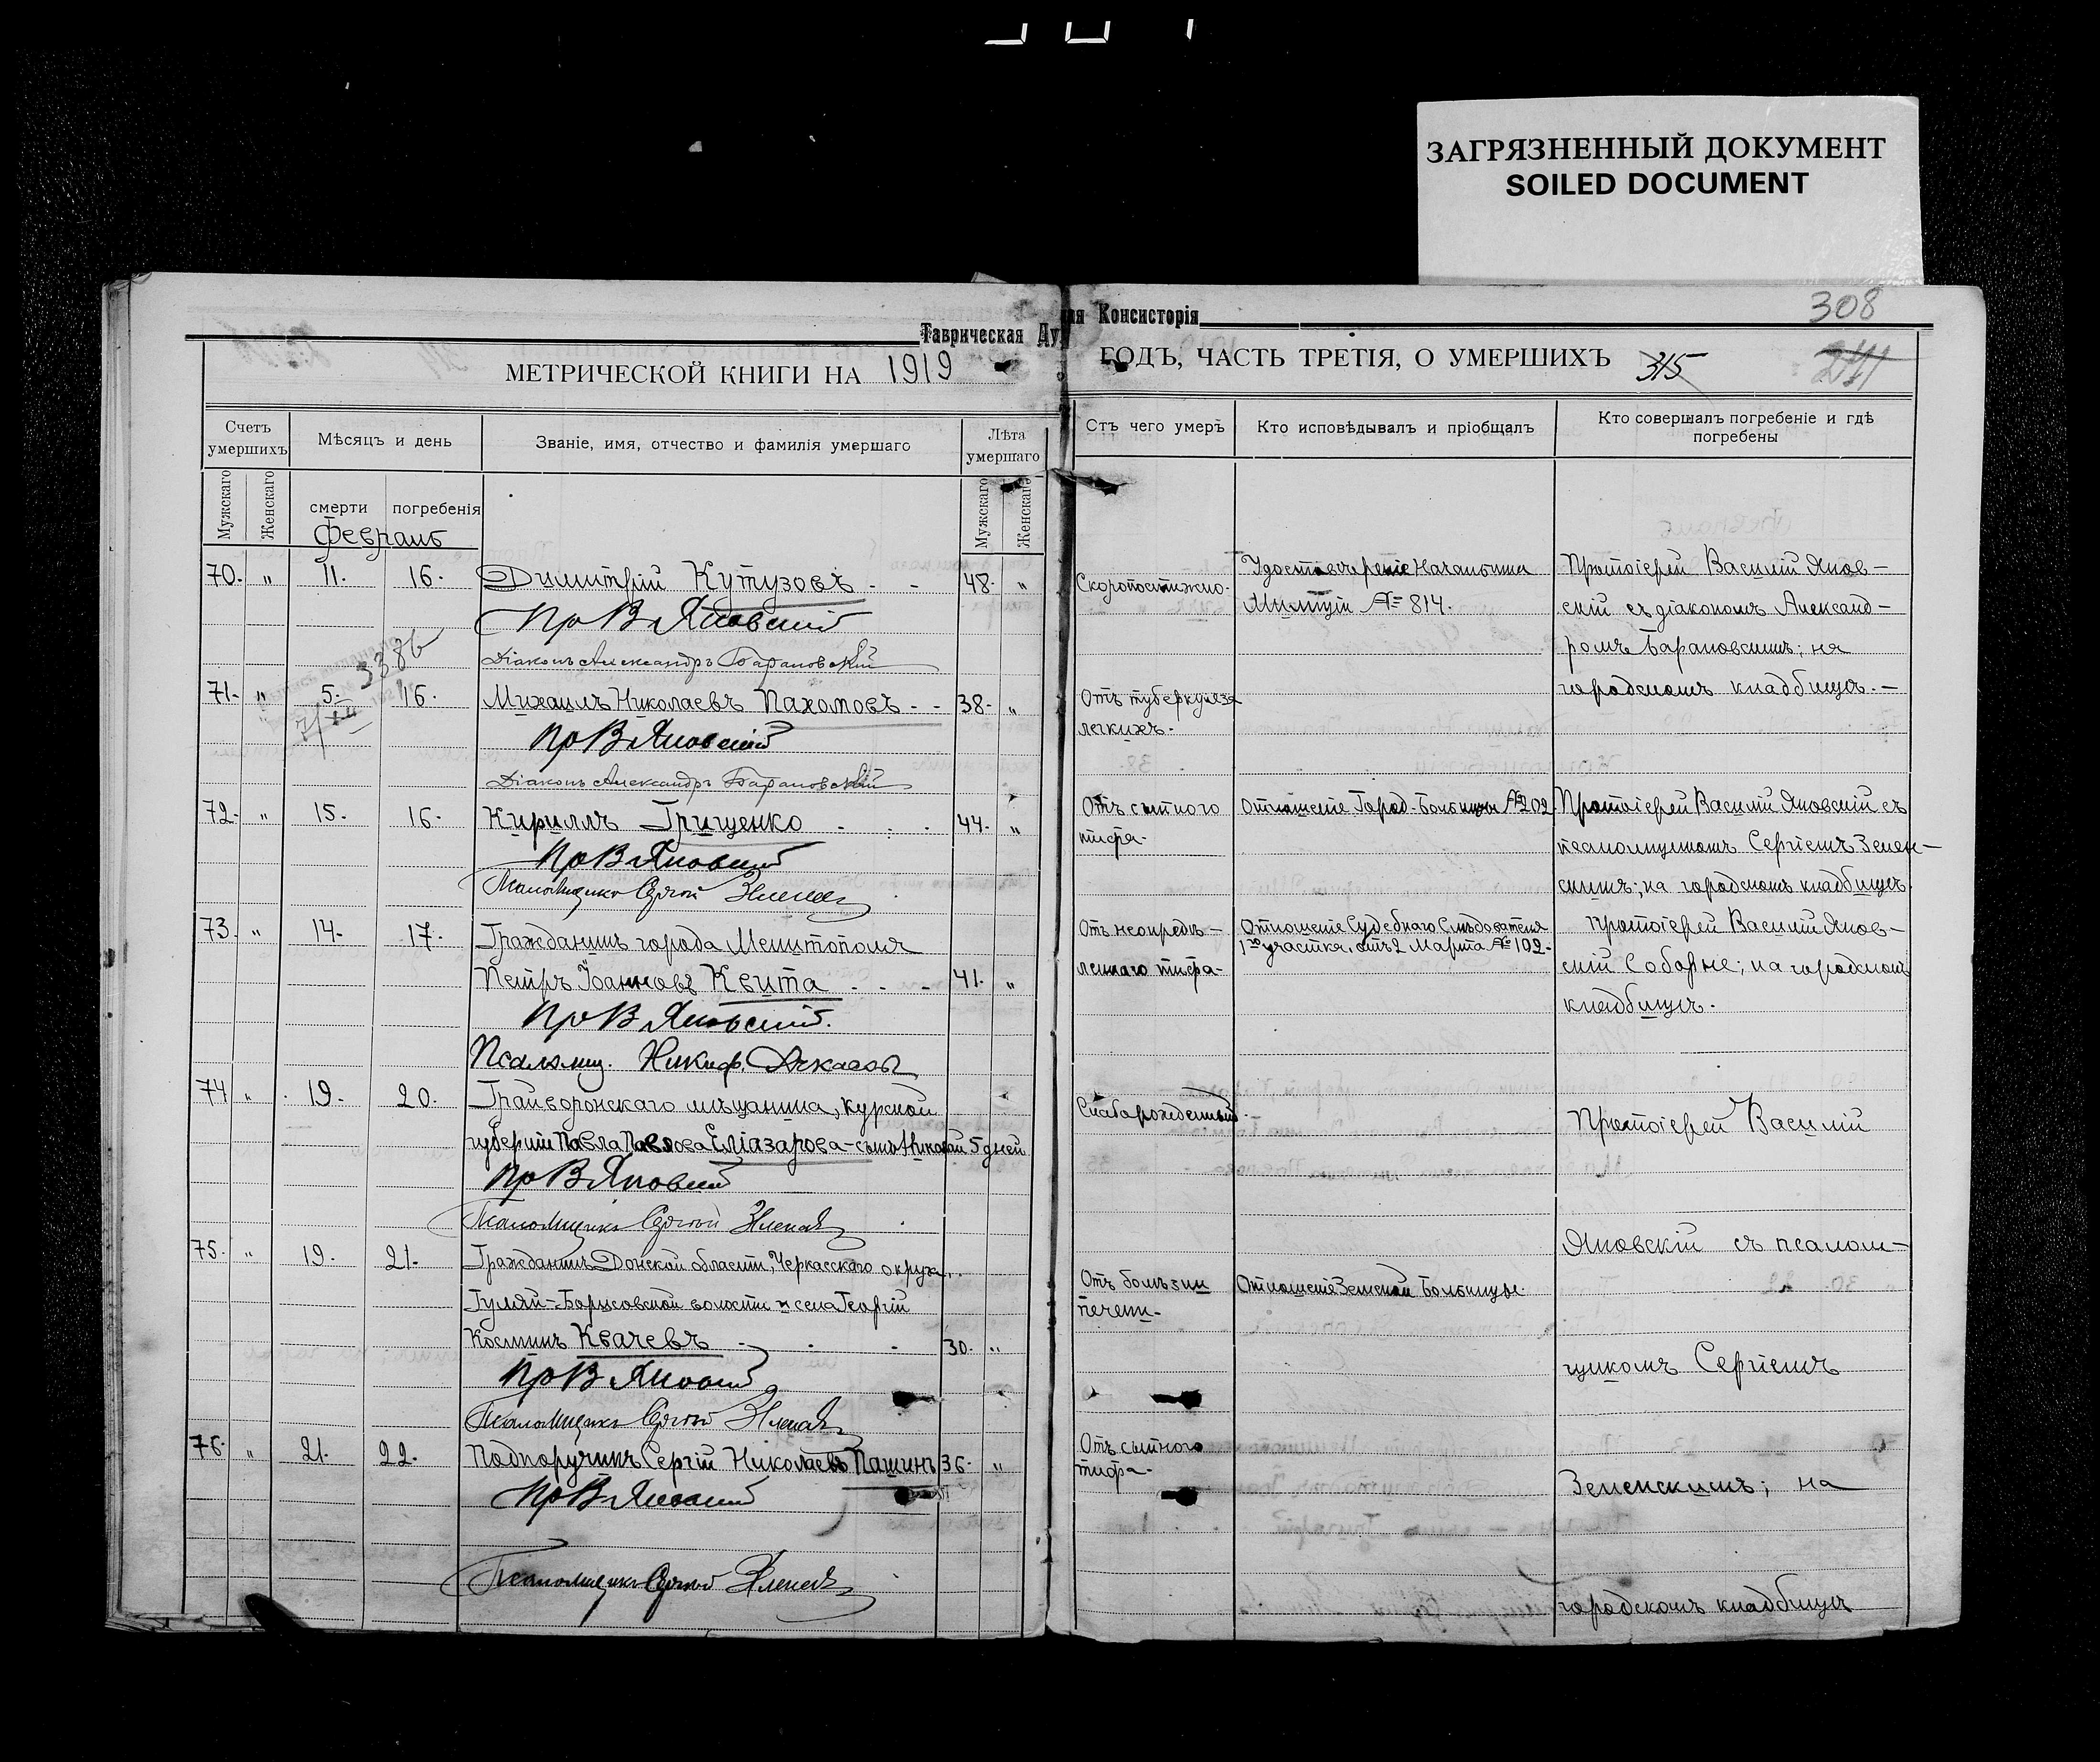 ЗАГРЯЗНЕННЫЙ ДОКУМЕНТ
SOILED DOCUMENT
308
Таврическая Ду
ія Консисторія
МЕТРИЧЕСКОЙ КНИГИ НА 1919
ГОДЪ, ЧАСТЬ ТРЕТІЯ, О УМЕРШИХЪ
315
Счетъ умершихъ
Мѣсяцъ и день
Званіе, имя, отчество и фамилія умершаго
Лѣта умершаго
Отъ чего умеръ
Кто исповѣдывалъ и пріобщалъ
Кто совершалъ погребеніе и гдѣ погребены
Мужскаго
Женскаго
смерти
погребенія
Мужскаго
Женскаго
Февраль
70. " 11. 16. Димитрій Кутузовъ - - 48. "
Пр В Яновскій
Діаконъ Александръ Барановскій
338б
71. " 5. 16. Михаилъ Николаевъ Пахомовъ - - 38. "
Пр В Яновскій
Діаконъ Александръ Барановскій
72. " 15. 16. Кириллъ Грищенко - . . 44. "
Пр В Яновскій
Псаломщикъ Сергій
73. " 14. 17. Гражданинъ города Мелитополя
Петръ Іоанновъ Квита - - - 41. "
Пр В Яновскій.
Псаломщ. Никиф.
74 " 19. 20. Грайворонскаго мѣщанина, Курской
губерніи Павла Павлова Еліазарова - сынъ Николай 5 дней
Пр В Яновскій
Псаломщикъ Сергій
75. " 19. 21. Гражданинъ Донской области, Черкасскаго округа,
Гуляй-Борисовской волости и села Георгій
Косминъ Квачевъ - . - 30. "
Пр В Яновскій
Псаломщикъ Сергій
76. " 21. 22. Подпоручикъ Сергій Николаевъ Пашинъ 36. "
Пр В Яновскій
Псаломщикъ Сергій
Скоропостижно.
Удостовѣреніе Начальника
Милиціи № 814.
Протоіерей Василій Янов-
скій съ діакономъ Александ-
ромъ Барановскимъ; на
городскомъ кладбищѣ. -
Отъ туберкулеза
легкихъ.
Отъ сыпного
тифа.
Отношеніе Город. Больницы № 202.
Протоіерей Василій Яновскій съ
псаломщикомъ Сергіемъ Зелен-
скимъ; на городскомъ кладбищѣ.
Отъ неопредѣ-
леннаго тифа.
Отношеніе Судебнаго Слѣдователя
1го участка, отъ 2 Марта № 102.
Протоіерей Василій Янов-
скій Соборне; на городскомъ
кладбищѣ.
Слаборожденный.
Протоіерей Василій
Яновскій съ псалом-
Отъ болѣзни
печени.
Отношеніе Земской Больницы.
щикомъ Сергіемъ
Отъ сыпного
тифа.
Зеленскимъ; на
городскомъ кладбищѣ